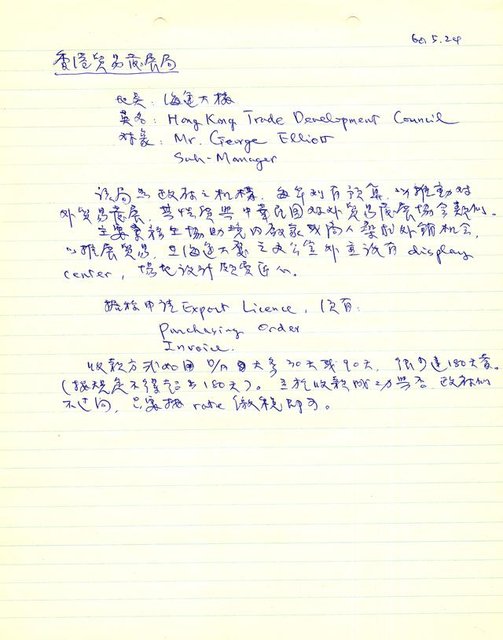 60.5.24
香港貿易發展局
地点：海運大樓
英名：Hong Kong Trade Development Council
对象：Mr. George Elliott
Sub-Manager
該局為政府之机構，每年列有預算，以推動对
外貿易發展，其性質與中華民國对外貿易發展協會類似。
主要業務在協助境内廠家或商人
以推展貿易，在海運大廈之办公室外並設有 display
center，場地設計
申請 Export Licence，須有：
Purchasing Order
Invoice
收款方式 D/A 大多30天或90天，很少達180天者。
(按規定不得超出180天)。至於收款成功與否政府似
不过问，只要按 rate 繳税即可。